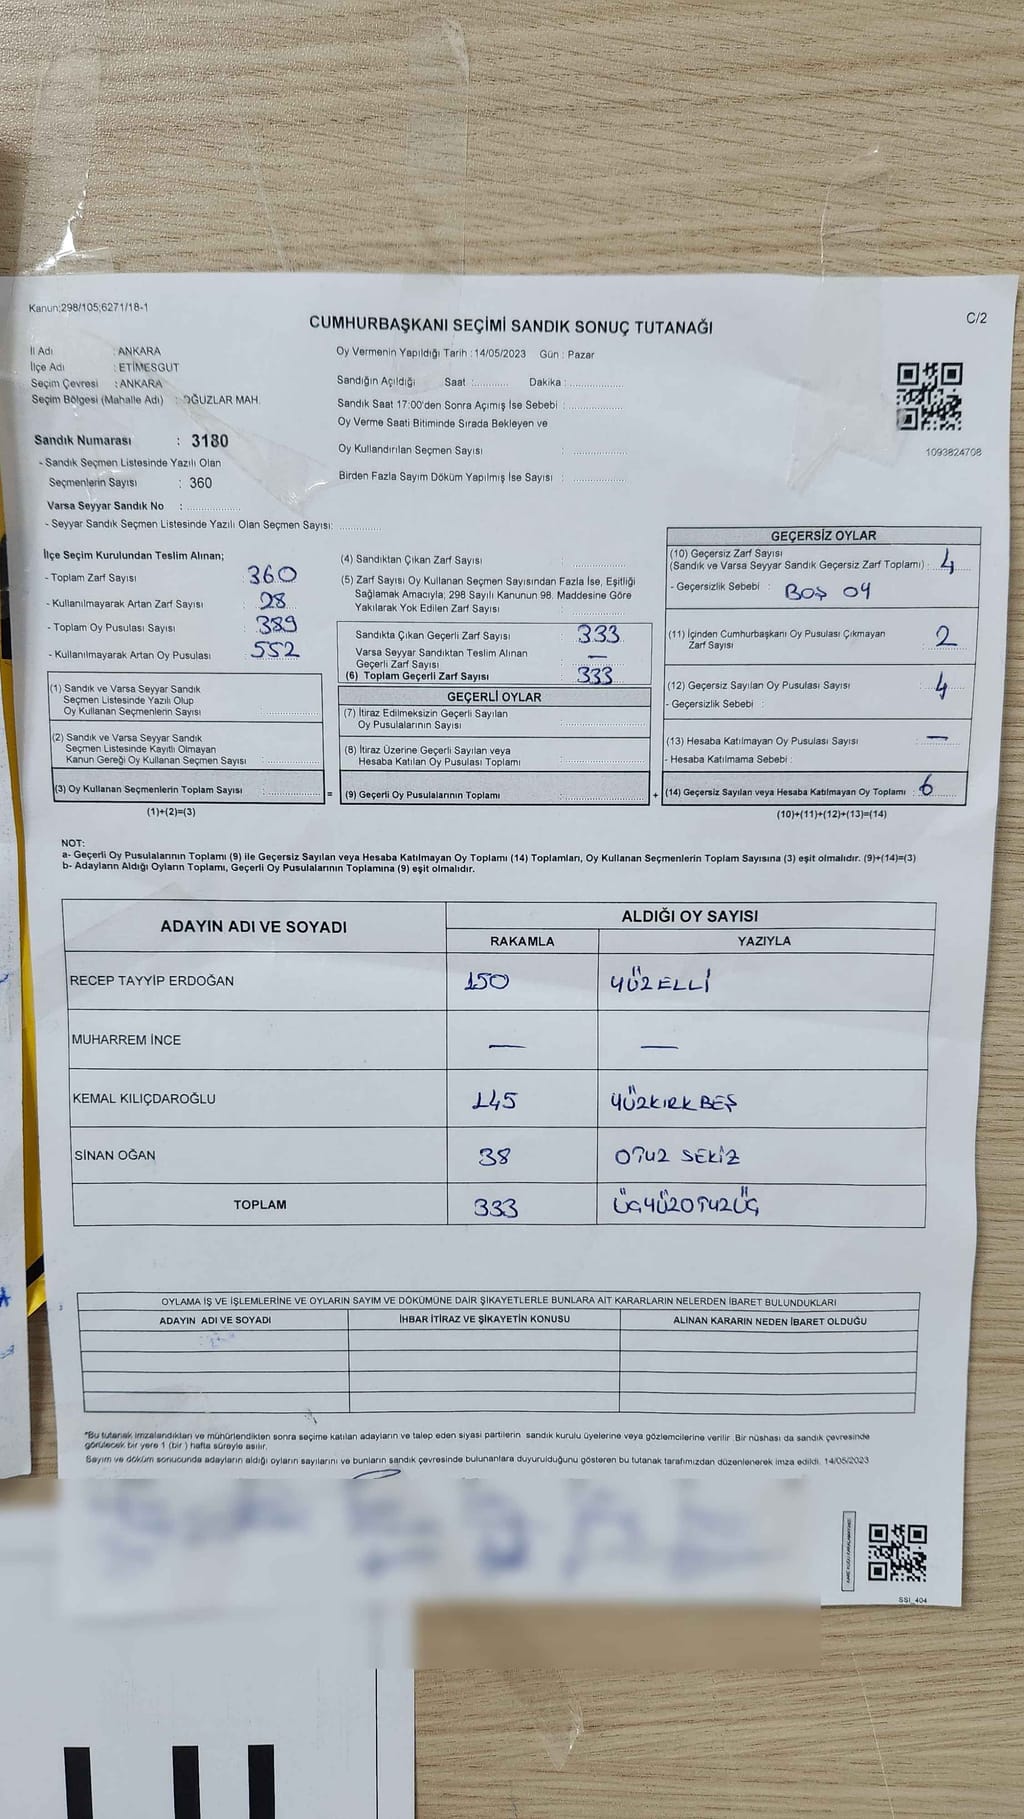 Kanun;298/105;6271/18-1
C/2
CUMHURBAŞKANI SEÇİMİ SANDIK SONUÇ TUTANAĞI
İl Adı : ANKARA
İlçe Adı : ETİMESGUT
Seçim Çevresi : ANKARA
Seçim Bölgesi (Mahalle Adı) : OĞUZLAR MAH.
Sandık Numarası : 3180
- Sandık Seçmen Listesinde Yazılı Olan
Seçmenlerin Sayısı : 360
Varsa Seyyar Sandık No :
- Seyyar Sandık Seçmen Listesinde Yazılı Olan Seçmen Sayısı:
Oy Vermenin Yapıldığı Tarih : 14/05/2023 Gün : Pazar
Sandığın Açıldığı Saat : Dakika :
Sandık Saat 17:00'den Sonra Açımış İse Sebebi :
Oy Verme Saati Bitiminde Sırada Bekleyen ve
Oy Kullandırılan Seçmen Sayısı :
Birden Fazla Sayım Döküm Yapılmış İse Sayısı :
1093824708
İlçe Seçim Kurulundan Teslim Alınan;
- Toplam Zarf Sayısı : 360
- Kullanılmayarak Artan Zarf Sayısı : 28
- Toplam Oy Pusulası Sayısı : 389
- Kullanılmayarak Artan Oy Pusulası : 552
(1) Sandık ve Varsa Seyyar Sandık
Seçmen Listesinde Yazılı Olup
Oy Kullanan Seçmenlerin Sayısı :
(2) Sandık ve Varsa Seyyar Sandık
Seçmen Listesinde Kayıtlı Olmayan
Kanun Gereği Oy Kullanan Seçmen Sayısı :
(3) Oy Kullanan Seçmenlerin Toplam Sayısı :
(1)+(2)=(3)
(4) Sandıktan Çıkan Zarf Sayısı :
(5) Zarf Sayısı Oy Kullanan Seçmen Sayısından Fazla İse, Eşitliği
Sağlamak Amacıyla; 298 Sayılı Kanunun 98. Maddesine Göre
Yakılarak Yok Edilen Zarf Sayısı :
Sandıkta Çıkan Geçerli Zarf Sayısı : 333
Varsa Seyyar Sandıktan Teslim Alınan
Geçerli Zarf Sayısı : —
(6) Toplam Geçerli Zarf Sayısı : 333
GEÇERLİ OYLAR
(7) İtiraz Edilmeksizin Geçerli Sayılan
Oy Pusulalarının Sayısı :
(8) İtiraz Üzerine Geçerli Sayılan veya
Hesaba Katılan Oy Pusulası Toplamı :
= (9) Geçerli Oy Pusulalarının Toplamı :
GEÇERSİZ OYLAR
(10) Geçersiz Zarf Sayısı
(Sandık ve Varsa Seyyar Sandık Geçersiz Zarf Toplamı) : 4
- Geçersizlik Sebebi : BOŞ OY
(11) İçinden Cumhurbaşkanı Oy Pusulası Çıkmayan
Zarf Sayısı : 2
(12) Geçersiz Sayılan Oy Pusulası Sayısı : 4
- Geçersizlik Sebebi :
(13) Hesaba Katılmayan Oy Pusulası Sayısı : —
- Hesaba Katılmama Sebebi :
+ (14) Geçersiz Sayılan veya Hesaba Katılmayan Oy Toplamı : 6
(10)+(11)+(12)+(13)=(14)
NOT:
a- Geçerli Oy Pusulalarının Toplamı (9) ile Geçersiz Sayılan veya Hesaba Katılmayan Oy Toplamı (14) Toplamları, Oy Kullanan Seçmenlerin Toplam Sayısına (3) eşit olmalıdır. (9)+(14)=(3)
b- Adayların Aldığı Oyların Toplamı, Geçerli Oy Pusulalarının Toplamına (9) eşit olmalıdır.
ADAYIN ADI VE SOYADI ALDIĞI OY SAYISI
RAKAMLA YAZIYLA
RECEP TAYYİP ERDOĞAN 150 YÜZELLİ
MUHARREM İNCE — —
KEMAL KILIÇDAROĞLU 145 YÜZKIRKBEŞ
SİNAN OĞAN 38 OTUZ SEKİZ
TOPLAM 333 ÜÇYÜZOTUZÜÇ
OYLAMA İŞ VE İŞLEMLERİNE VE OYLARIN SAYIM VE DÖKÜMÜNE DAİR ŞİKAYETLERLE BUNLARA AİT KARARLARIN NELERDEN İBARET BULUNDUKLARI
ADAYIN ADI VE SOYADI İHBAR İTİRAZ VE ŞİKAYETİN KONUSU ALINAN KARARIN NEDEN İBARET OLDUĞU
*Bu tutanak imzalandıktan ve mühürlendikten sonra seçime katılan adayların ve talep eden siyasi partilerin sandık kurulu üyelerine veya gözlemcilerine verilir .Bir nüshası da sandık çevresinde
görülecek bir yere 1 (bir ) hafta süreyle asılır.
Sayım ve döküm sonucunda adayların aldığı oyların sayılarını ve bunların sandık çevresinde bulunanlara duyurulduğunu gösteren bu tutanak tarafımızdan düzenlenerek imza edildi. 14/05/2023
SSI_404